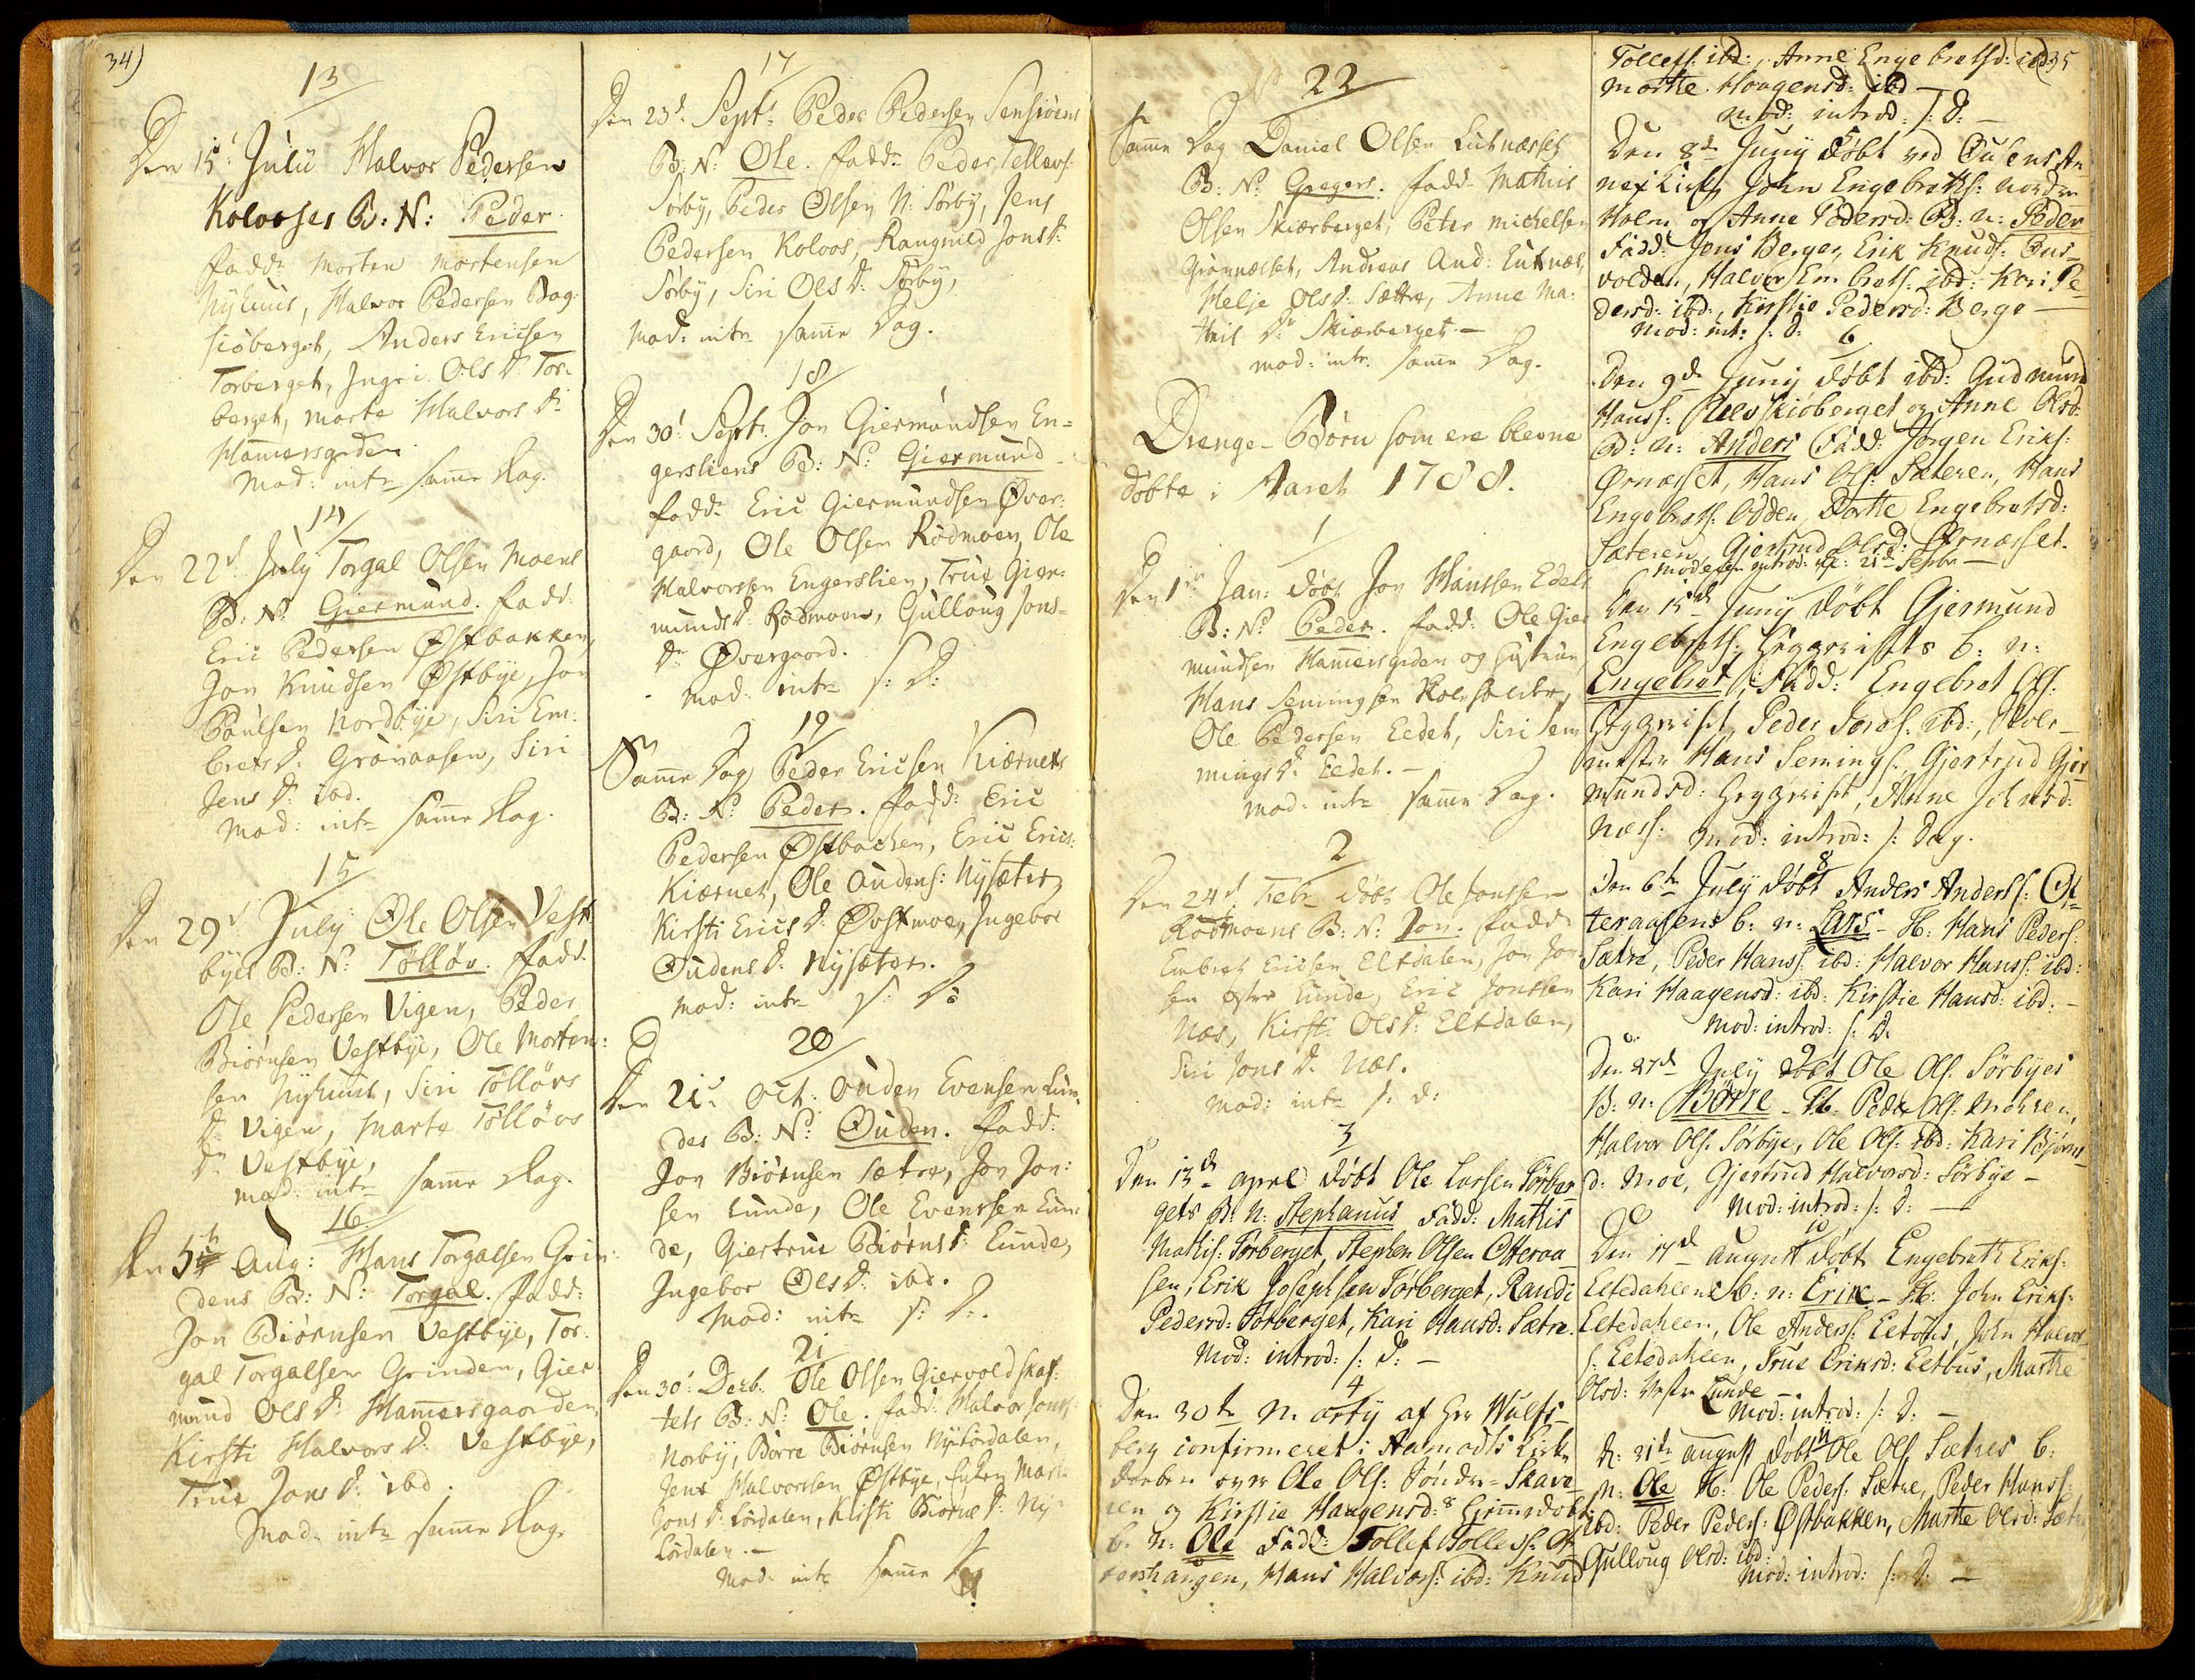 34)
13
Den 15 Julii Halvor Pedersen
Kolosses B: N: Peder
fadd: Morten Mortensen
Nyhuus, Halvor Pedersen Bag-
siöberget, Anders Ericsen
Torberget, Ingri Ols D. Tor-
berget, Marte Halvors Dr
Hamersgrden
Mod: intr samme Dag.
14
Den 22d July Torgal Olsen Moens
B: N: Giermund. fadd.
Eric Pedersen Østbakken,
Jon Knudsen Østbye, Jon
Poulsen Nordbye, Siri Em-
brets D: Grønaasen, Siri
Jens D: ibd.
Mod: intr samme Dag.
15
Den 29d July Ole Olsen Vest
byes B: N: Tølløv. fadd.
Ole Pedersen Vigen, Peder
Biørnsen Vestbye, Ole Morten-
sen Nyhuus, Siri Tølløvs
D: Vigen, Marte Tølløvs
Dr Vestbye,
mod: intr samme Dag.
16
Den 5te Aug: Hans Torgalsen Grin-
dens B: N: Torgal. fadd:
Jon Biørnsen Vestbye, Tor-
gal Torgalsen Grinden, Gier
mund Ols D: Hamersgaarden
Kirsti Halvors D: Vestbye,
True Jons D: ibd.
Mod: intr samme Dag.
17
Den 23d Septr Peder Pedersen Sensiöens
B: N: Ole. fadd: Peder Tellevs:
Sørby, Peder Olsen N: Sørby, Jens
Pedersen Koloos, Rangnild Jons D:
Sørby, Siri Ols D: Sørby,
Mod: intr samme Dag.
18
Den 30. Septr Jon Giermundsen En-
gersliens B: N: Giermund
fadd: Eric Giermundsen Øver-
gaard, Ole Olsen Rødmoen, Ole
Halvorsen Engerslien, True Gier-
munds D: Rødmoen, Gulloug Jons
Dr Øvergaard.
Mod: intr s: D:
19
Samme Dag Peder Ericsen Kiærnets
B: N: Peder. fadd: Eric
Pedersen Østbachen, Eric Erics:
Kiærnet, Ole Oudens: Nysæter,
Kirsti Erics D: Øvstmoe, Ingebor
Oudens D: Nysæter.
Mod: intr s: D:
20
Den 21d Oct: Ouden Evensen Lun-
des B: N: Ouden. fadd:
Jon Biørnsen Sætre, Jon Jon-
sen Lunde, Ole Evenssen Lun-
de, Giertrue Biørns D: Lunde,
Ingebor Ols D: ibd.
Mod: intr s: D:
21
Den 30. Decb. Ole Olsen Giervoldskaf-
tets B: N: Ole. fadd: Halvor Jons:
Norby, Børre Biørnsen Nylördalen,
Jens Halvorsen Østbye, Marte
Jons D: Lördalen, Kirsti Biørns D: Ny-
Lördalen.
Mod: intr samme Dag
22
Samme Dag Daniel Olsen Lutnæsset
B: N: Gregers. fadd: Mathis
Olsen Skiærberget, Peter Michelsen
Grønnæsset, Andreas And: Lutnæs,
Helje Ols D: Sætre, Anne Ma-
this Dr Skiærberget.
mod: intr. samme Dag.
Drenge-Børn som ere blevne
døbte i Aaret 1788.
1
Den 1te Jan: døbt Jon Hanssen Edets
B: N: Peder. fadd: Ole Gier
mundsen Hamersgrden og Hustrue,
Hans Semingsen Skolholder,
Ole Pedersen Eedet, Siri Sem
mings D: Eedet.
mod: intr samme Dag.
2
Den 24d Febr døbt Ole Jonssen
Rødmoens B: N: Jon. fadd:
Embret Ericsen Eltdalen, Jon Jon-
sen østre Lunde, Eric Jonssen
Næs, Kirsti Ols D: Eltdalen,
Siri Jons D: Næs.
Mod: intr s: d:
3
Den 13de April døbt Ole Larsen Törber-
gets B: N: Stephanus Fadd: Mathis
Mathis: Törberget, Stephen Olsen Otteraa-
sen, Erik Josephsen Törberget, Randi
Pedersd: Törberget, Kari Hansd: Sætre.
Mod: introd: s: D:
4
Den 30te af Hr Wulfs-
berg confirmeret i Aamodts Kirke
Daaben over Ole Ols: Söndre-Skare-
ren og Kirstie Haagensd:
b: n: Ole Fadd: Tollef Tolless:
Hans Halvors: ibd: Knud
(35
Tollefs: ibd:, Anne Engebretsd: ibd:
Marthe Haagensd: ibd
Mod: introd: s: D:
5
Den 8de Juny døbt ved
John Engebrets: Nordre
Holm og Anne Pedersd: B: n: Peder
Fadd: Jens Berger, Erik Knuds:
volden, Halvor Embrets: ibd: Kari Pe-
dersd: ibd:, Kirstie Pedersd: Berge
Mod: int: s: D:
6
Den 9de Juny døbt ibd: Gudmund
Hanss: Ulvskiöberget og Anne Olsd:
B: n: Anders Fadd: Jörgen Eriks:
Ornæsset, Hans Ols: Sæteren, Hans
Engebrets: Odden, Dorthe Engebretsd:
Sæteren, Gjertrud Olsd: Ornæsset.
Moderen introd: 21de Septbr
Den 15de Juny døbt Gjermund
Engebrets: Hyggrisets b: n:
Engebret, Fadd: Engebret Ols:
Hyggriset, Peder Tords: ibd:, Skole-
mester Hans Semings: Gjertrud Gjer
mundsd: Hyggriset, Anne Johnsd:
Næss: Mod: introd: s: Dag.
8
Den 6te July døbt Anders Anderss: Ot-
teraasens b: n: Lars - F: Hans Peders:
Sætre, Peder Hanss: ibd: Halvor Hanss: ibd:
Kari Haagensd: ibd: Kirstie Hansd: ibd:
Mod: introd: s: D.
9
Den 27de July døbt Ole Ols: Sörbyes
B: n: Börre - F: Peder Ols: Mohren,
Halvor Ols: Sörbye, Ole Ols: ibd: Kari Björns
d: Moe, Gjertrud Halvorsd: Sörbye
Mod: introd: s: D:
10
Den 17de August døbt Engebreth Eriks:
Eltedahlens b: n: Erik - F: John Eriks:
Eltedahlen, Ole Anderss: Eltöns, John Halvor
s: Eltedahlen, True Eriksd: Marthe
Olsd: Vestre Lunde
Mod: introd: s: D:
11
D: 31te August døbt Ole Ols: Sætres b:
n: Ole F: Ole Peders: Sætre, Peder Hanss:
ibd: Peder Peders: Østbakken, Marthe Olsd: Sætre
Gulloug Olsd: ibd:
Mod: introd: s: D: